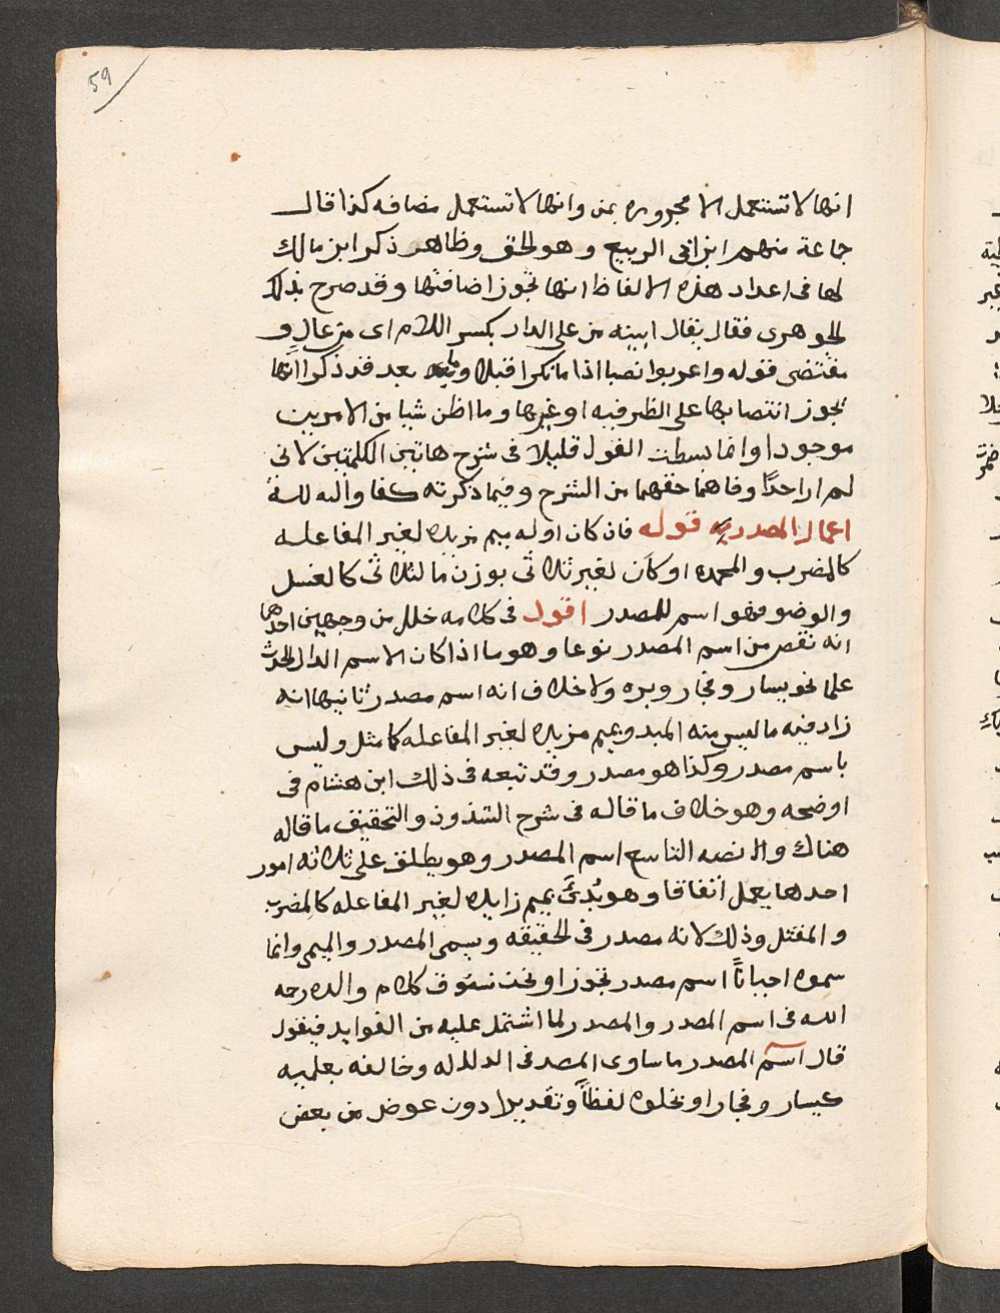 59
انها لا تستعمل الا مجروره بمن وانها لا تستعمل مضافه كذا قال
جماعة منهم ابن ابي الربيع وهو الحق وظاهر ذكر ابن مالك
لها في اعداد هذه الالفاظ انها تجوز اضافتها وقد صرح بذلك
الجوهري فقال يقال اتيته من علِ الدار بكسر اللام اي من عالٍ و
مقتضى قوله واعربوا نصبا اذا ما نكرا قبلا وما بعد قد ذكرا انها
تجوز انتصابها على الظرفيه او غيرها وما اظن شيا من الامرين
موجودا وانما بسطت القول قليلا في شرح هاتين الكلمتين لاني
لم ار احدًا وفاهما حقهما من الشرح وفيما ذكرته كفا
اعمال المصدر قوله فان كان اوله ميم مزيده لغير المفاعله
كالمضرب والمحمده او كان لغير ثلاثي بوزن ما لثلاثي كالغسل
والوضو فهو اسم للمصدر اقول في كلامه خلل من وجهين احدهما
انه نقص من اسم المصدر نوعا وهو ما اذا كان الاسم الدال الحدث
علما نحو يسار وفجار وبره ولا خلاف انه اسم مصدر ثانيها انه
زاد فيه ما ليس منه المبدو بميم مزيده لغير المفاعله كما مثل وليس
باسم مصدر وكذا هو مصدر وقد تبعه في ذلك ابن هشام في
اوضحه وهو خلاف ما قاله في شرح الشذوذ والتحقيق ما قاله
هناك نصه التاسع اسم المصدر وهو يطلق على ثلاثه امور
احدها يعمل اتفاقا وهو بُدئَ بميم زايده لغير المفاعله كالمضرب
والمقتل وذلك لانه مصدر في الحقيقه ويسمى المصدر والميمي وانما
سموه احيانًا اسم مصدر تجوزا ونحن نسوق كلام والده رحمه
الله في اسم المصدر والمصدر لما اشتمل عليه من الفوايد فنقول
قال اسم المصدر ما ساوى المصدر في الدلاله وخالفه بعلميه
كيسار وفجار او بخلوه لفظًا وتقديرا دون عوض من بعض